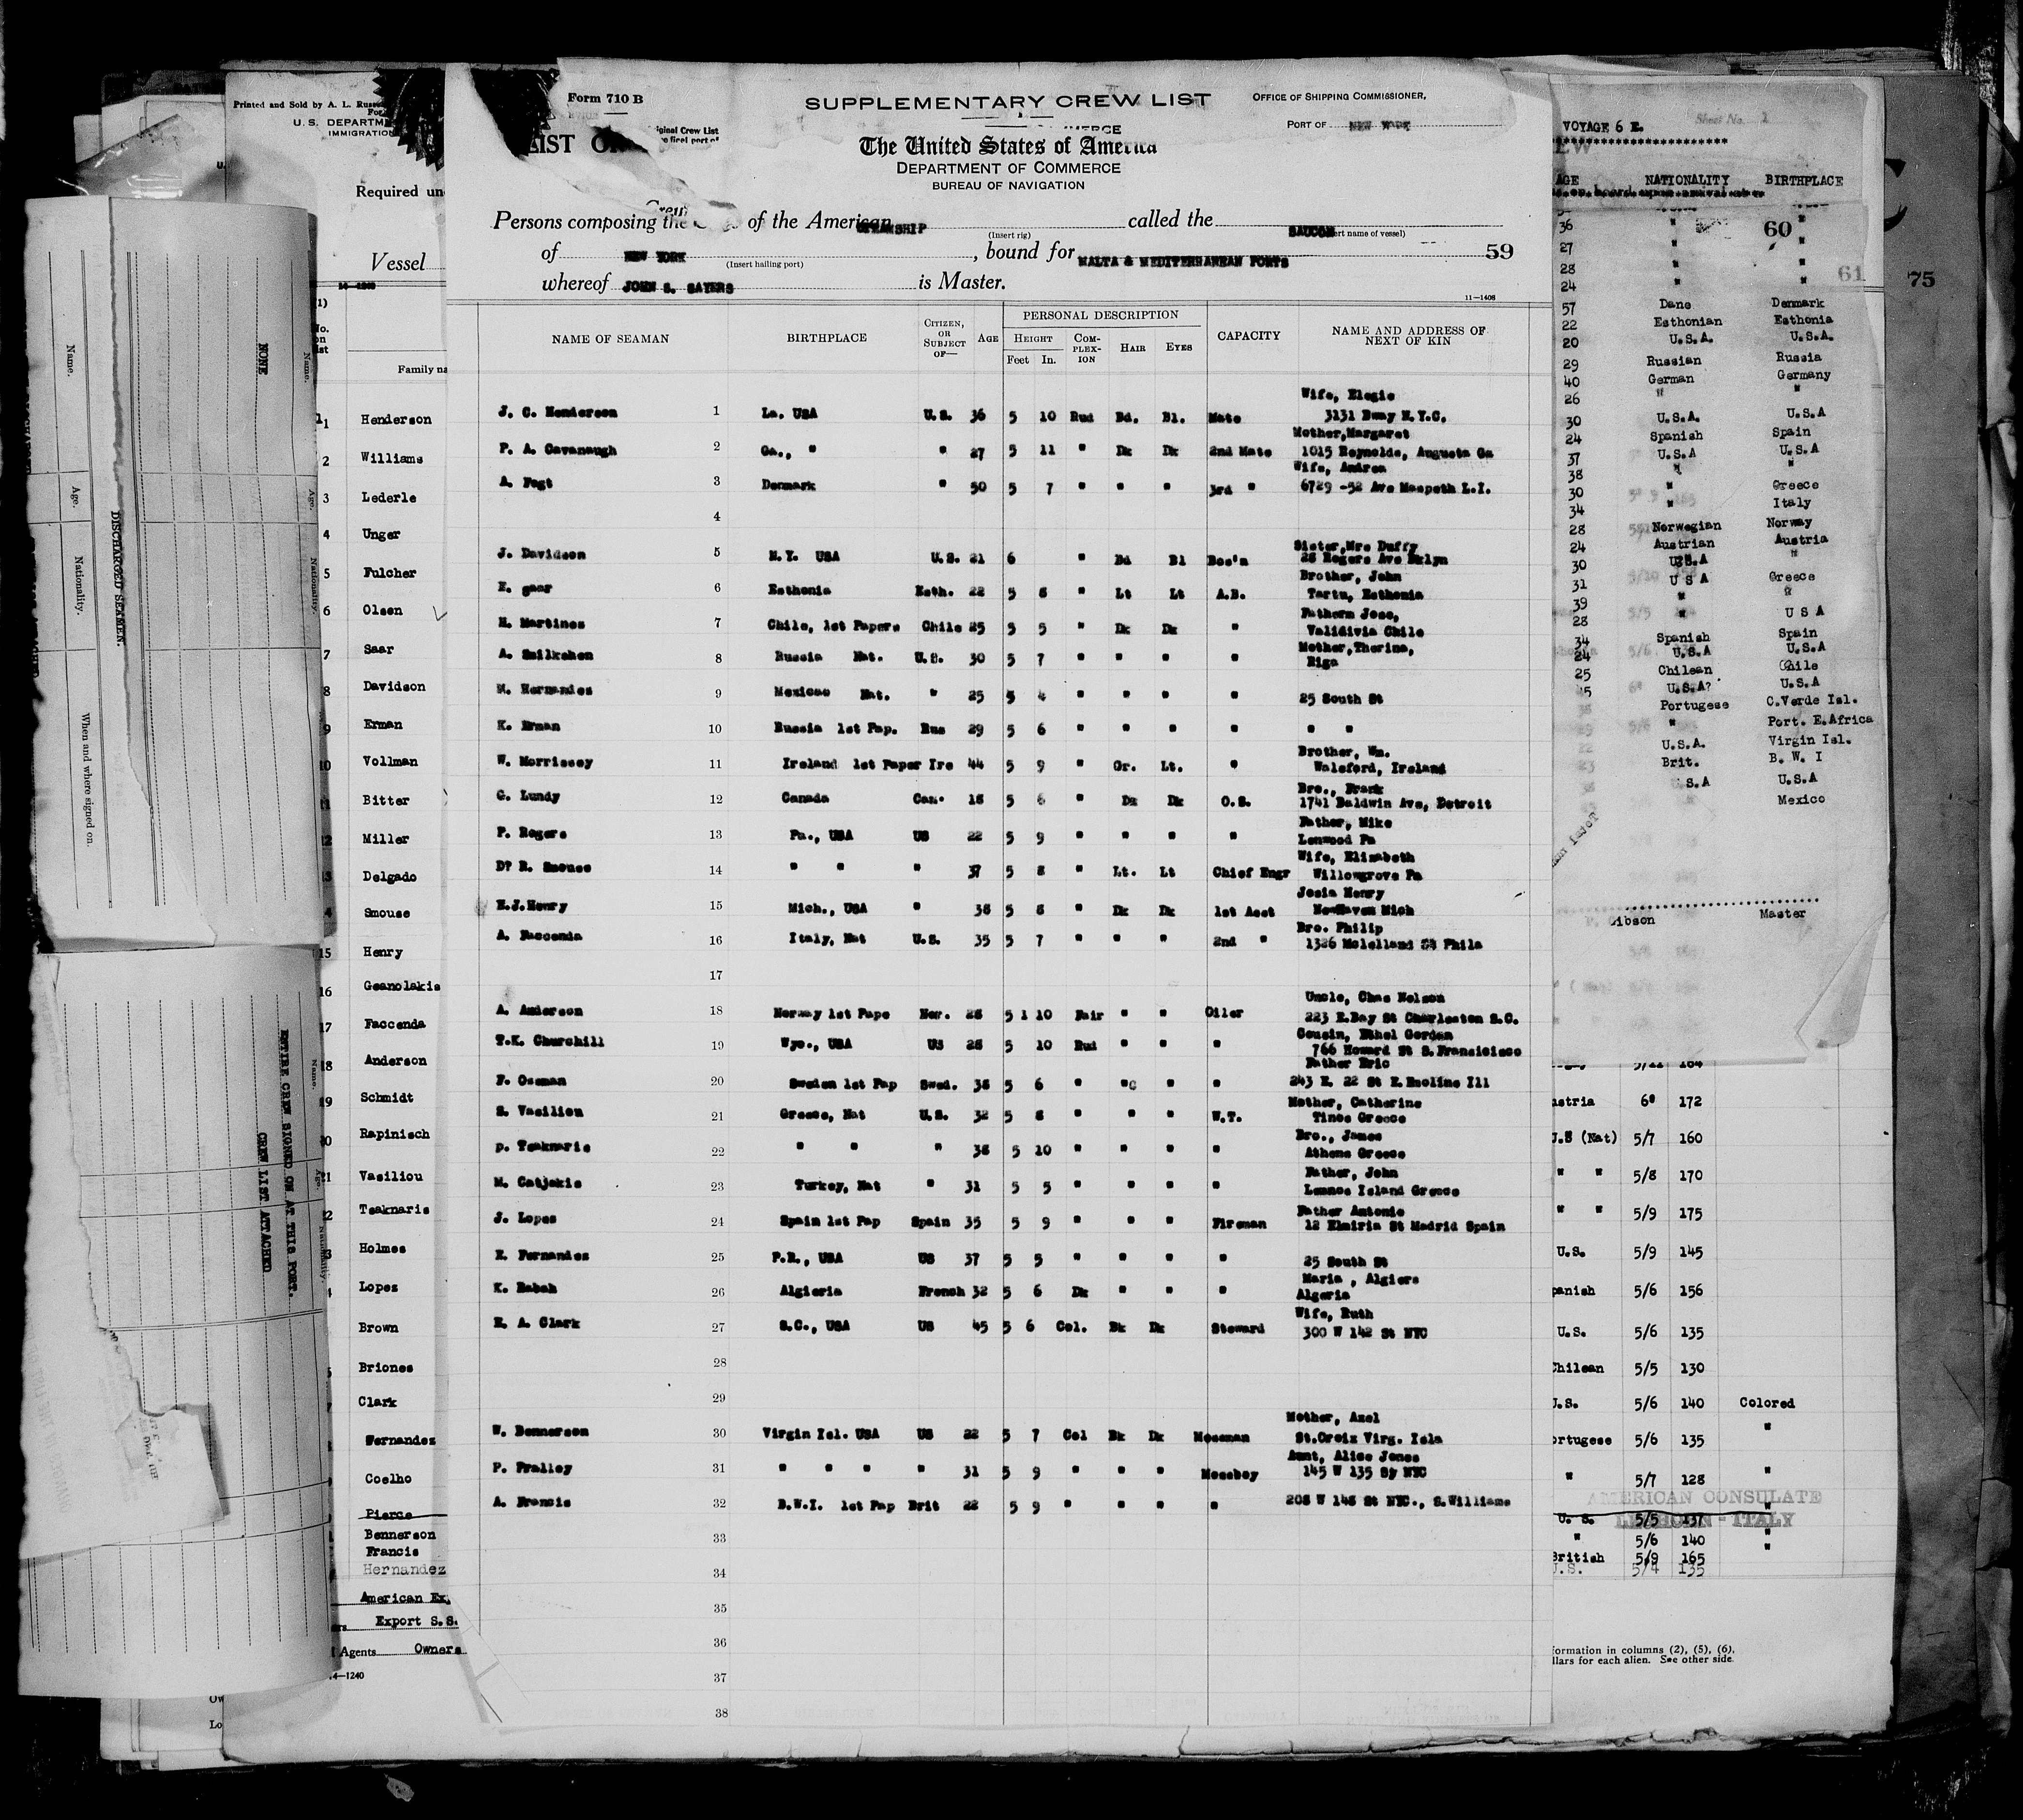 Form 710 B
SUPPLEMENTARY CREW LIST
OFFICE OF SHIPPING COMMISSIONER,
PORT OF NEW YORK
LIST O
iginal Crew List
The United States of America
DEPARTMENT OF COMMERCE
BUREAU OF NAVIGATION
Persons composing the Crew of the American STEAMSHIP called the SAUCON
(Insert rig)
of NEW YORK, bound for MALTA & MEDITERRANEAN PORTS 59
(Insert hailing port)
whereof JOHN S. SAYERS is Master.
11—1408
NAME OF SEAMAN BIRTHPLACE CITIZEN, OR SUBJECT OF— AGE PERSONAL DESCRIPTION CAPACITY NAME AND ADDRESS OF NEXT OF KIN
HEIGHT Feet In. COM-PLEX-ION HAIR EYES
Wife, Elsgie
J. C. Henderson 1 La. USA U.S. 36 5 10 Rud Bd. Bl. Mate 3131 Bway N.Y.C.
Mother,Margaret
P. A. Cavanaugh 2 Ga., " " 27 5 11 " Dk Dk 2nd Mate 1015 Reynolds, Augusta Ga
Wife, Andrea
A. Fogt 3 Denmark " 50 5 7 " " " 3rd " 6729 -52 Ave Maspeth L.I.
4
Sister,Mrs Duffy
J. Davidson 5 N.Y. USA U.S. 21 6 " Bd Bl Bos'n 28 Rogers Ave Bklyn
Brother, John
E. saar 6 Esthonia Esth. 22 5 8 " Lt Lt A.B. Tartu, Esthonia
Fatherm Jose,
H. Martines 7 Chile, 1st Papers Chile 25 5 5 " Dk Dk " Validivia Chile
Mother,Therina,
A. Smilkshen 8 Russia Nat. U.S. 30 5 7 " " " " Riga
M. Hernandes 9 Mexicao Nat. " 25 5 4 " " " " 25 South St
K. Erman 10 Russia 1st Pap. Rus 29 5 6 " " " " " "
Brother, Wm.
W. Morrissey 11 Ireland 1st Paper Ire 44 5 9 " Gr. Lt. " Waleford, Ireland
Bro., Frank
G. Lundy 12 Canada Can. 18 5 6 " Dk Dk O.S. 1741 Baldwin Ave, Detroit
Father, Mike
P. Rogers 13 Pa., USA US 22 5 9 " " " " Lenwood Pa
Wife, Elizabeth
D? R. Smouse 14 " " " 37 5 8 " Lt. Lt Chief Engr Willowgrove Pa
Josia Henry
E.J.Henry 15 Mich., USA " 38 5 8 " Dk Dk 1st Asst NewHaven Mich
Bro. Philip
A. Faccenda 16 Italy, Nat U.S. 35 5 7 " " " 2nd " 1326 Mclelland St Phila
17
Uncle, Chas Nelson
A. Anderson 18 Norway 1st Pape Nor. 28 5 1 10 Fair " " Oiler 223 E.Bay St Charleston S.C.
Cousin, Ethel Gordan
T.K. Churchill 19 Wyo., USA US 28 5 10 Rud " " " 766 Howard St S.Fransicisco
Father Eric
F. Ossman 20 Sweden 1st Pap Swed. 38 5 6 " " " " 243 E. 22 St E.Moline Ill
Mother, Catherine
S. Vasiliou 21 Greece, Nat U.S. 32 5 8 " " " W.T. Tinos Greece
Bro., James
p. Tsaknaris 22 " " " 38 5 10 " " " " Athens Greece
Father, John
M. Catjakis 23 Turkey, Nat " 31 5 5 " " " " Lemnos Island Greece
Father Antonio
J. Lopes 24 Spain 1st Pap Spain 35 5 9 " " " Fireman 12 Elmiria St Madrid Spain
E. Fernandes 25 P.R., USA US 37 5 5 " " " " 25 South St
Maria , Algiers
K. Rabah 26 Algieria French 32 5 6 Dk " " " Algeria
Wife, Ruth
E. A. Clark 27 S.C., USA US 45 5 6 Col. Bk Dk Steward 300 W 142 St NYC
28
29
Mother, Axel
W. Bennerson 30 Virgin Isl. USA US 22 5 7 Col Bk Dk Messman St.Croix Virg. Isla
Aunt, Alice Jones
P. Fralley 31 " " " " " 31 5 9 " " " Messboy 145 W 135 St NYC
A. Francis 32 B.W.I. 1st Pap Brit 22 5 9 " " " " 208 W 148 St NYC., S.Williams
33
34
35
36
37
38
Printed and Sold by A. L. Russ
U. S. DEPARTM
IMMIGRATION
Required un
Vessel
Family na
1 Henderson
2 Williams
3 Lederle
4 Unger
5 Fulcher
6 Olsen
7 Saar
8 Davidson
9 Erman
10 Vollman
11 Bitter
12 Miller
13 Delgado
14 Smouse
15 Henry
16 Geanolakis
17 Faccenda
18 Anderson
19 Schmidt
20 Rapinisch
21 Vasiliou
22 Tsaknaris
Holmes
Lopez
Brown
Briones
Clark
Fernandez
Coelho
Pierce
Bennerson
Francis
Hernandez
American Ex
Export S.S.
Agents Owners
14—1240
Name.
Age.
Nationality.
When and where signed on.
DISCHARGED SEAMEN.
NONE
Name.
Age.
Nationality.
ENTIRE CREW SIGNED ON AT THIS PORT.
CREW LIST ATTACHED
Name.
Age.
Nationality.
VOYAGE 6 E.
Sheet No. 1
AGE NATIONALITY BIRTHPLACE
60
61
75
36 " "
27 " "
28 " "
24 " "
57 Dane Denmark
22 Esthonian Esthonia
20 U.S.A. U.S.A.
29 Russian Russia
40 German Germany
26 " "
30 U.S.A. U.S.A
24 Spanish Spain
37 U.S.A U.S.A
38 " "
30 " Greece
34 " Italy
28 Norwegian Norway
24 Austrian Austria
30 U.S.A "
31 U S A Greece
39 " "
28 " U S A
34 Spanish Spain
24 U.S.A U.S.A
25 Chilean Chile
45 U.S.A? U.S.A
Portugese C.Verde Isl.
" Port. E.Africa
U.S.A. Virgin Isl.
Brit. B. W. I
U.S.A U.S.A
" Mexico
Gibson Master
5/11 164
ustria 6" 172
U.S (Nat) 5/7 160
" " 5/8 170
" " 5/9 175
U.S. 5/9 145
panish 5/6 156
U.S. 5/6 135
Chilean 5/5 130
U.S. 5/6 140 Colored
ortugese 5/6 135 "
" 5/7 128 "
AMERICAN CONSULATE
LEGHORN - ITALY
U. S. 5/5 137 "
" 5/6 140 "
British 5/9 165 "
U.S. 5/4 135
formation in columns (2), (5), (6).
llars for each alien. See other side.